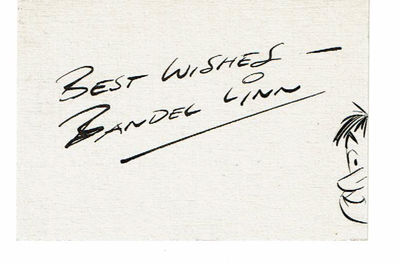 BEST WISHES —
BANDEL LINN